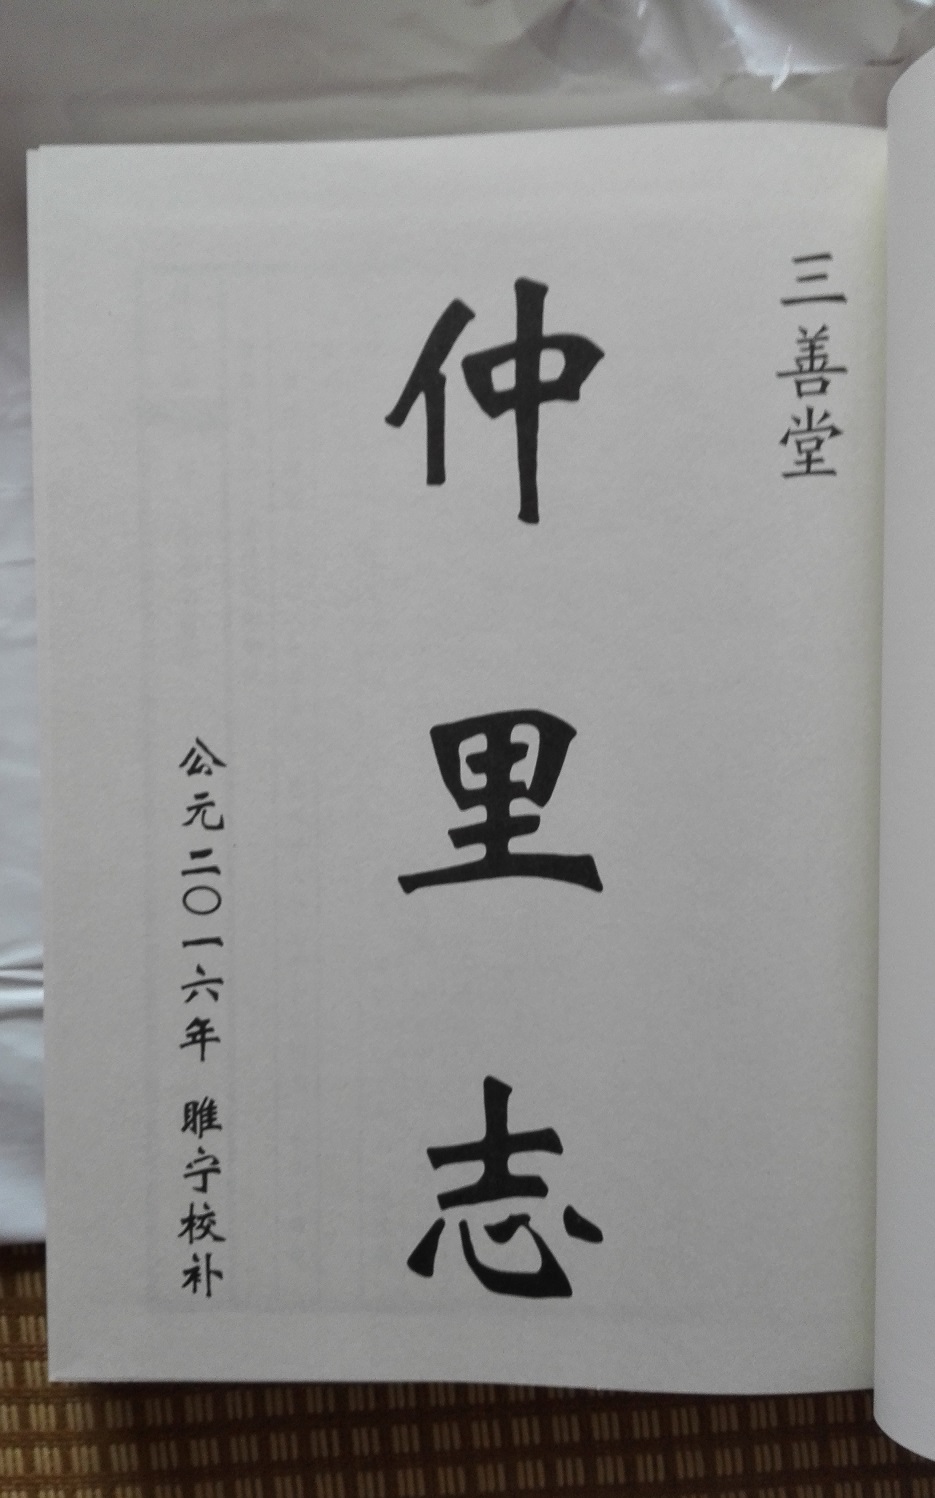 三善堂
仲里志
公元二〇一六年 睢宁校补